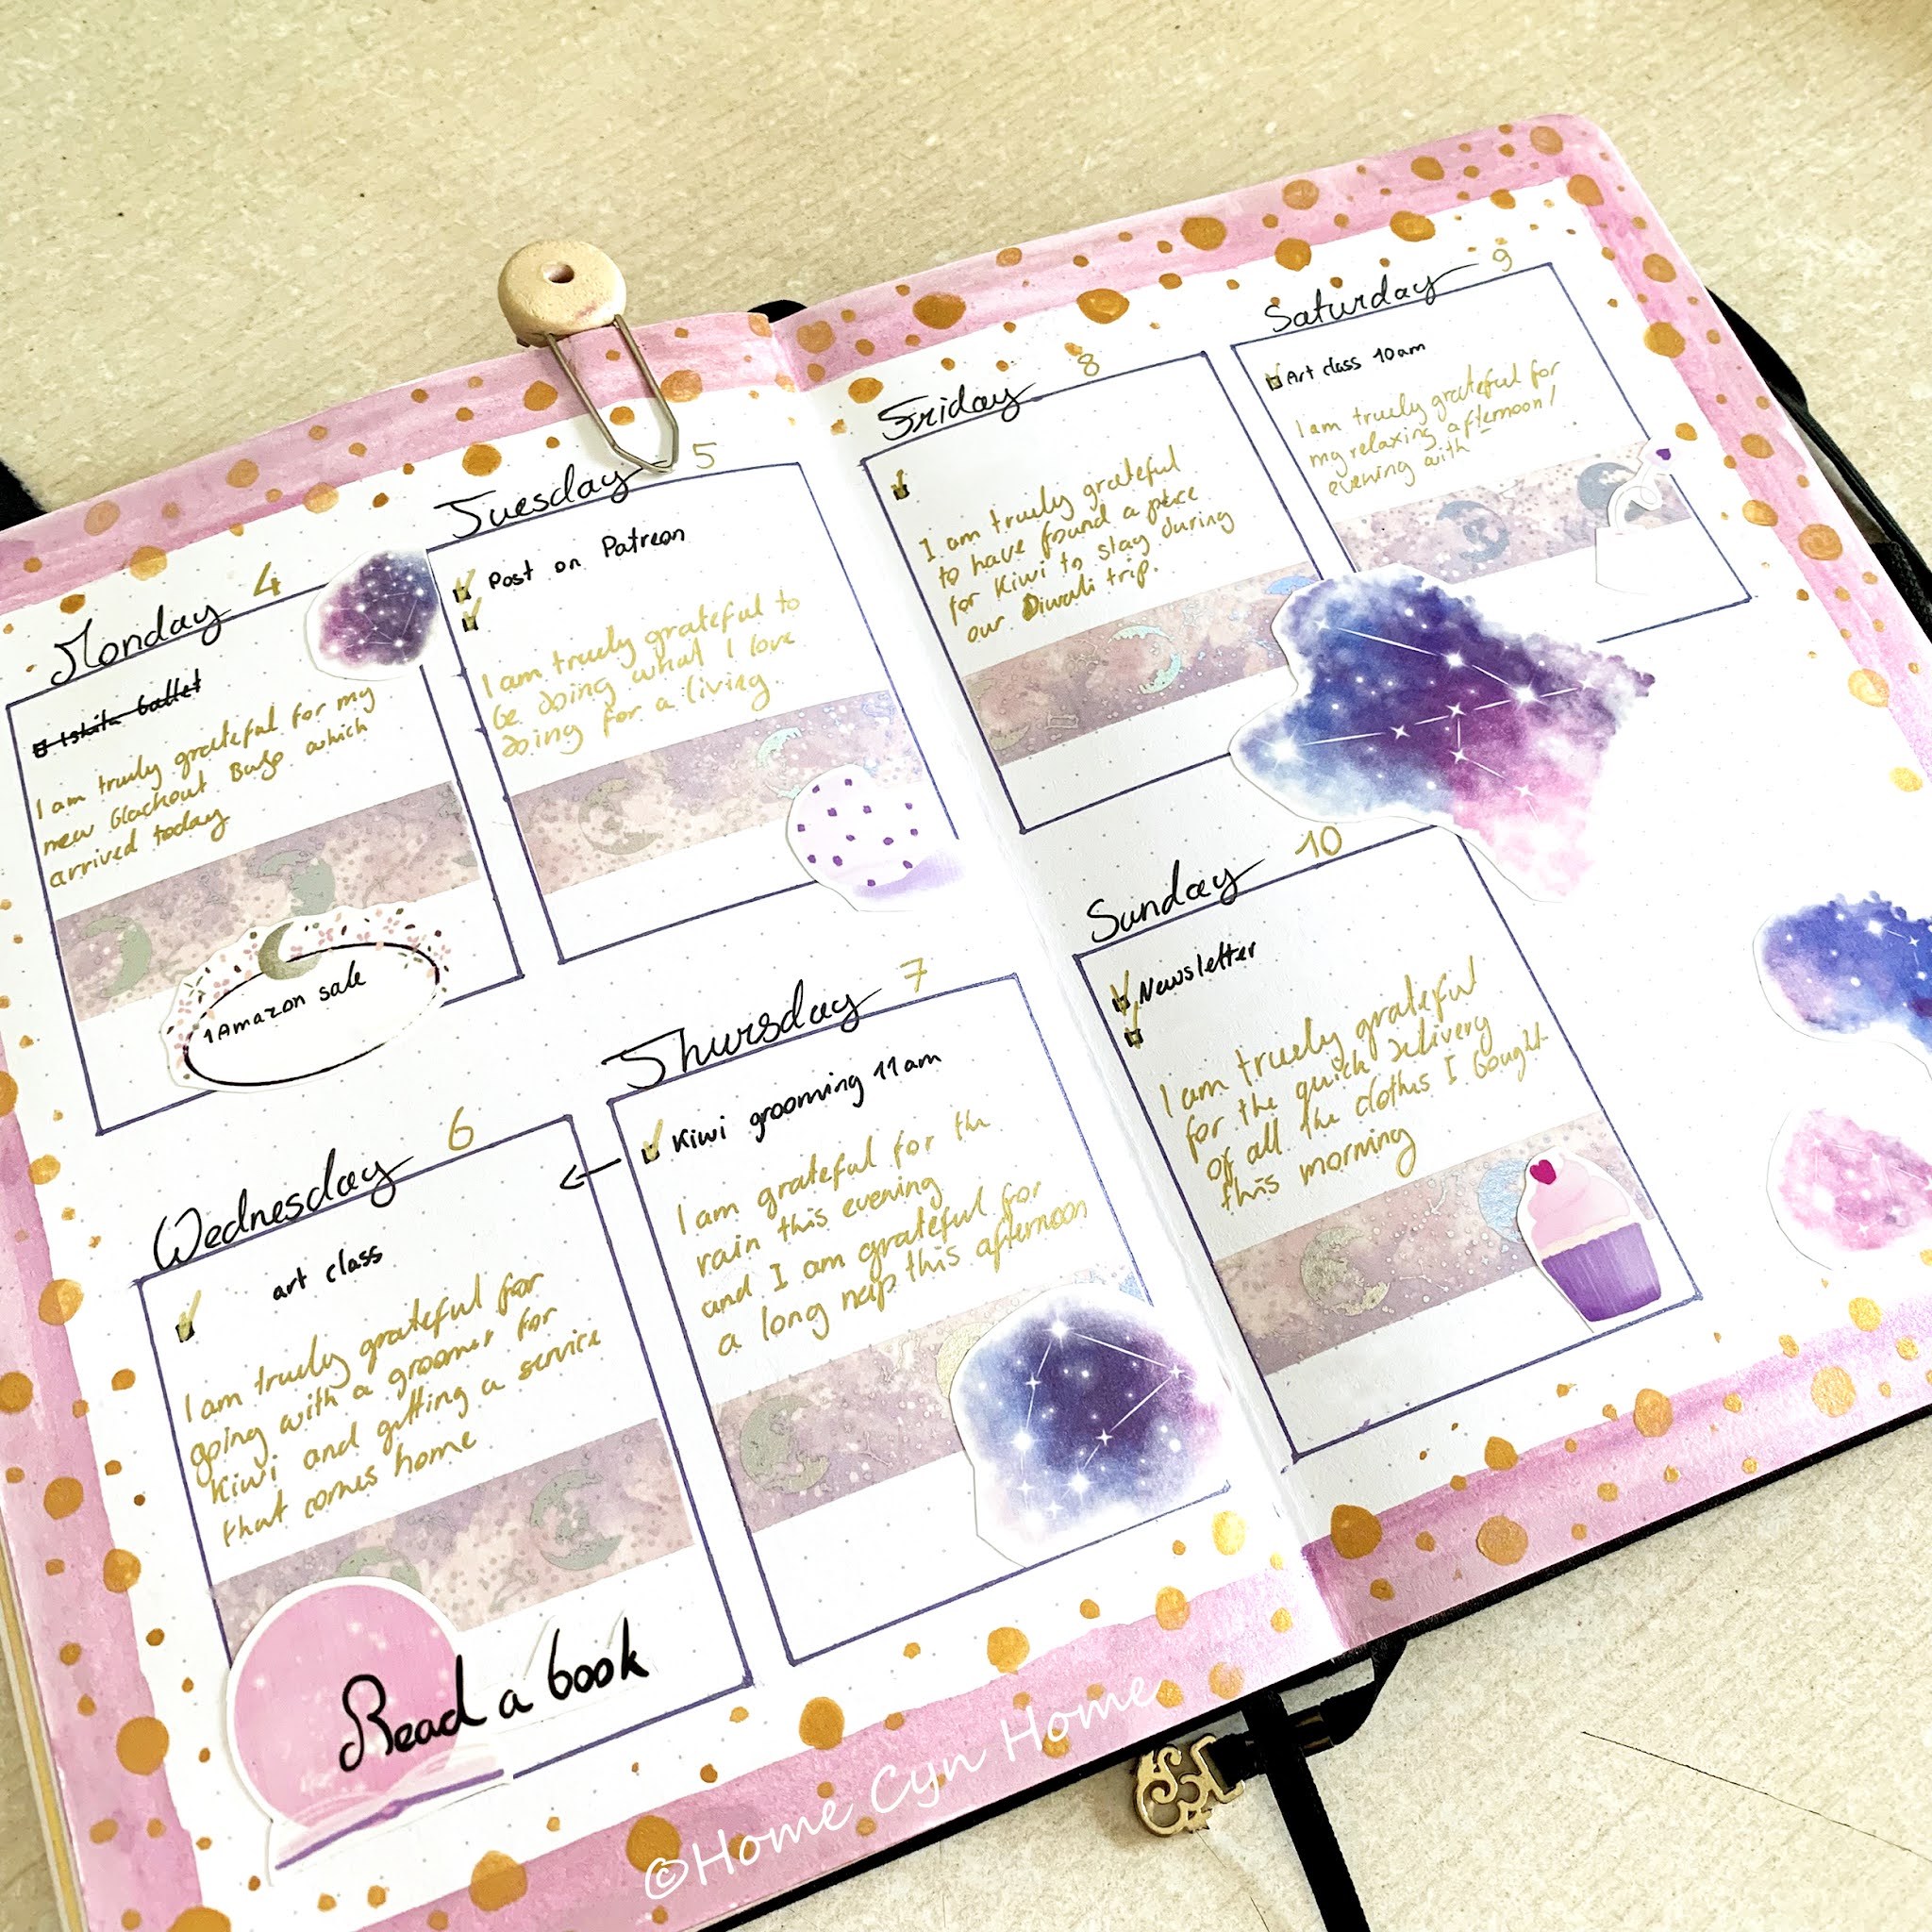 Monday 4
Ishita ballet
I am truely grateful for my
new blackout Bujo which
arrived today
1 Amazon sale
Tuesday 5
Post on Patreon
I am truely grateful to
be doing what I love
doing for a living
Wednesday 6
art class
I am truely grateful for
going with a groomer for
Kiwi and getting a service
that comes home
Read a book
Thursday 7
Kiwi grooming 11am
I am grateful for the
rain this evening
and I am grateful for
a long nap this afternoon
Friday 8
I am truely grateful
to have found a place
for Kiwi to stay during
our Diwali trip.
Saturday 9
Art class 10am
I am truely grateful for
my relaxing afternoon/
evening with
Sunday 10
Newsletter
I am truely grateful
for the quick delivery
of all the clothes I bought
this morning
©Home Cyn Home